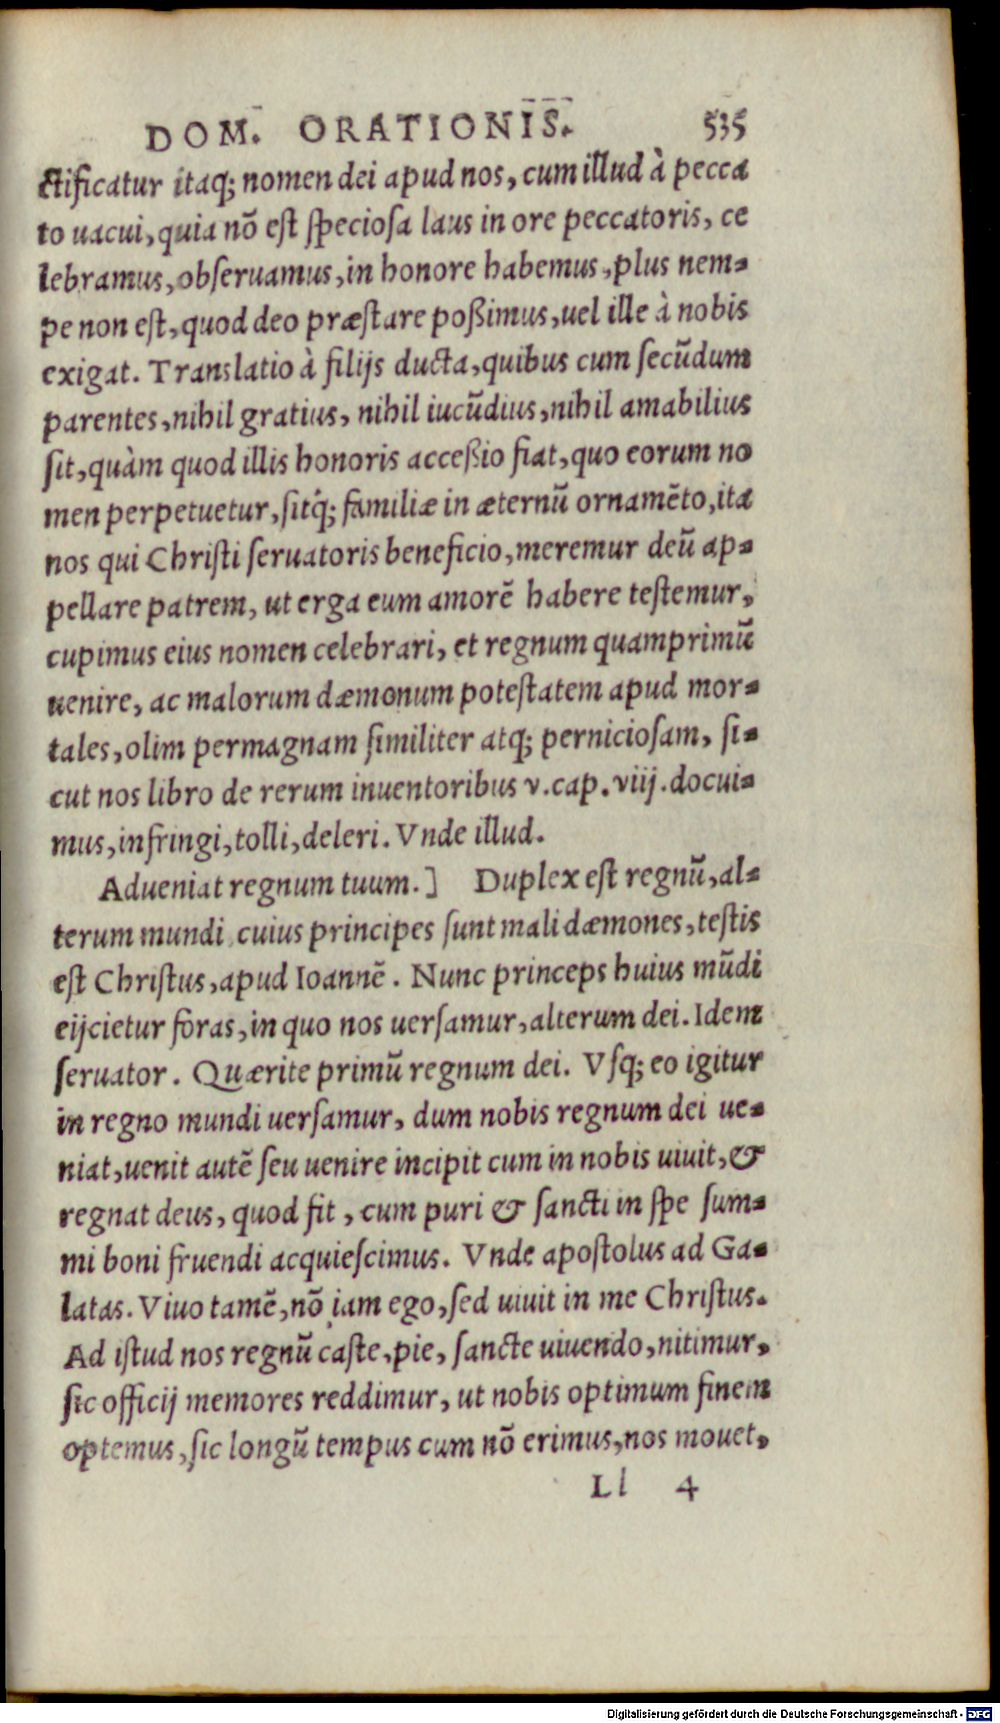 DOM. ORATIONIS. 535
ctificatur itaq; nomen dei apud nos, cum illud à pecca
to uacui, quia nō est speciosa laus in ore peccatoris, ce
lebramus, obseruamus, in honore habemus, plus nem-
pe non est, quod deo præstare poßimus, uel ille à nobis
exigat. Translatio à filijs ducta, quibus cum secūdum
parentes, nihil gratius, nihil iucūdius, nihil amabilius
sit, quàm quod illis honoris acceßio fiat, quo eorum no
men perpetuetur, sitq́; familiæ in æternū ornamēto, ita
nos qui Christi seruatoris beneficio, meremur deū ap-
pellare patrem, ut erga eum amorē habere testemur,
cupimus eius nomen celebrari, et regnum quamprimū
uenire, ac malorum dæmonum potestatem apud mor-
tales, olim permagnam similiter atq; perniciosam, si-
cut nos libro de rerum inuentoribus v. cap. viij. docui-
mus, infringi, tolli, deleri. Vnde illud.
Adueniat regnum tuum.] Duplex est regnū, al-
terum mundi cuius principes sunt mali dæmones, testis
est Christus, apud Ioannē. Nunc princeps huius mūdi
eijcietur foras, in quo nos uersamur, alterum dei. Idem
seruator. Quærite primū regnum dei. Vsq; eo igitur
in regno mundi uersamur, dum nobis regnum dei ue-
niat, uenit autē seu uenire incipit cum in nobis uiuit, &
regnat deus, quod fit, cum puri & sancti in spe sum-
mi boni fruendi acquiescimus. Vnde apostolus ad Ga-
latas. Viuo tamē, nō iam ego, sed uiuit in me Christus.
Ad istud nos regnū caste, pie, sancte uiuendo, nitimur,
sic officij memores reddimur, ut nobis optimum finem
optemus, sic longū tempus cum nō erimus, nos mouet,
Ll 4
Digitalisierung gefördert durch die Deutsche Forschungsgemeinschaft - DFG